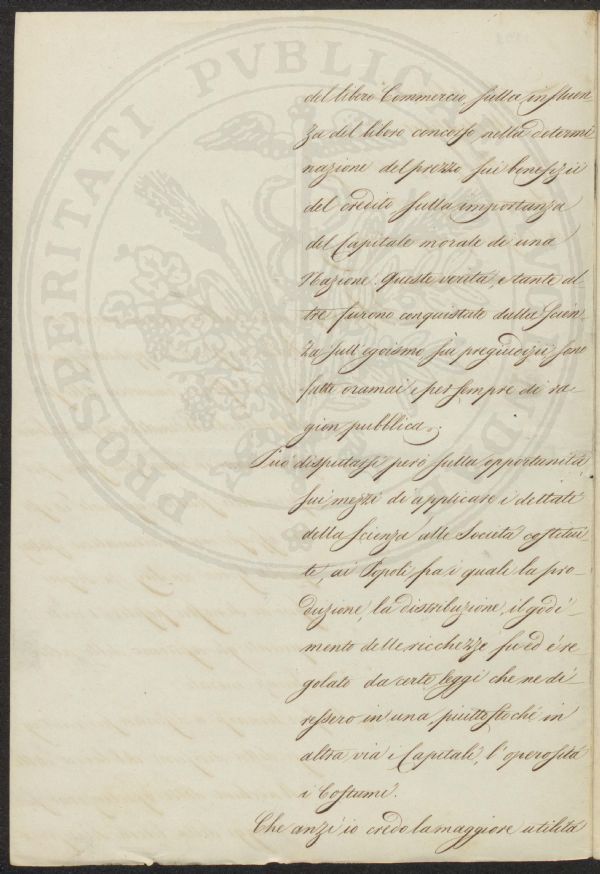 del libero Commercio, sulla influen
za del libero concorso nella determi
nazione del prezzo, sui benefizii
del credito sulla importanza
del Capitale morale di una
Nazione. Queste verità e tante al
tre furono conquistate dalla Scien
za sull'egoismo, sui pregiudizii sono
fatte oramai e per sempre di ra-
gion pubblica.
Può disputarsi però sulla opportunità
sui mezzi di applicare i dettati
della Scienza alle Società costitui-
te, ai Popoli fra i quali la pro-
duzione, la distribuzione, il godi-
mento delle ricchezze fu ed é re
golato da certe leggi che ne di
ressero in una, piuttosto ché in
altra via i Capitali, l'operosità
i Costumi.
Che anzi io credo la maggiore utilità
PROSPERITATI PVBLICAE